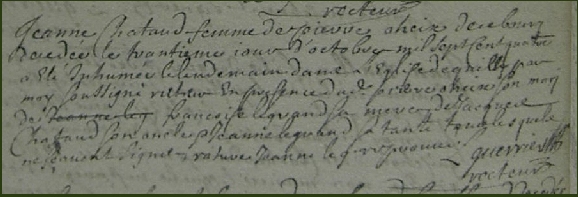 recteur
Jeanne Chataud femme de pierre aheix de ce bourg
decedee le trantieme jour d'octobre mil sept cent quatre
a ete Inhumée le lendemain dans l'Eglise de quilly par
moy soussigné recteur En presence du dt pierre aheix son mary
de francoise legrand sa mere de Jacques
Chataud son oncle Jeanne legrand sa tante tous lesquels
ne scavent signer rature Jeanne le g
guerriff
recteur